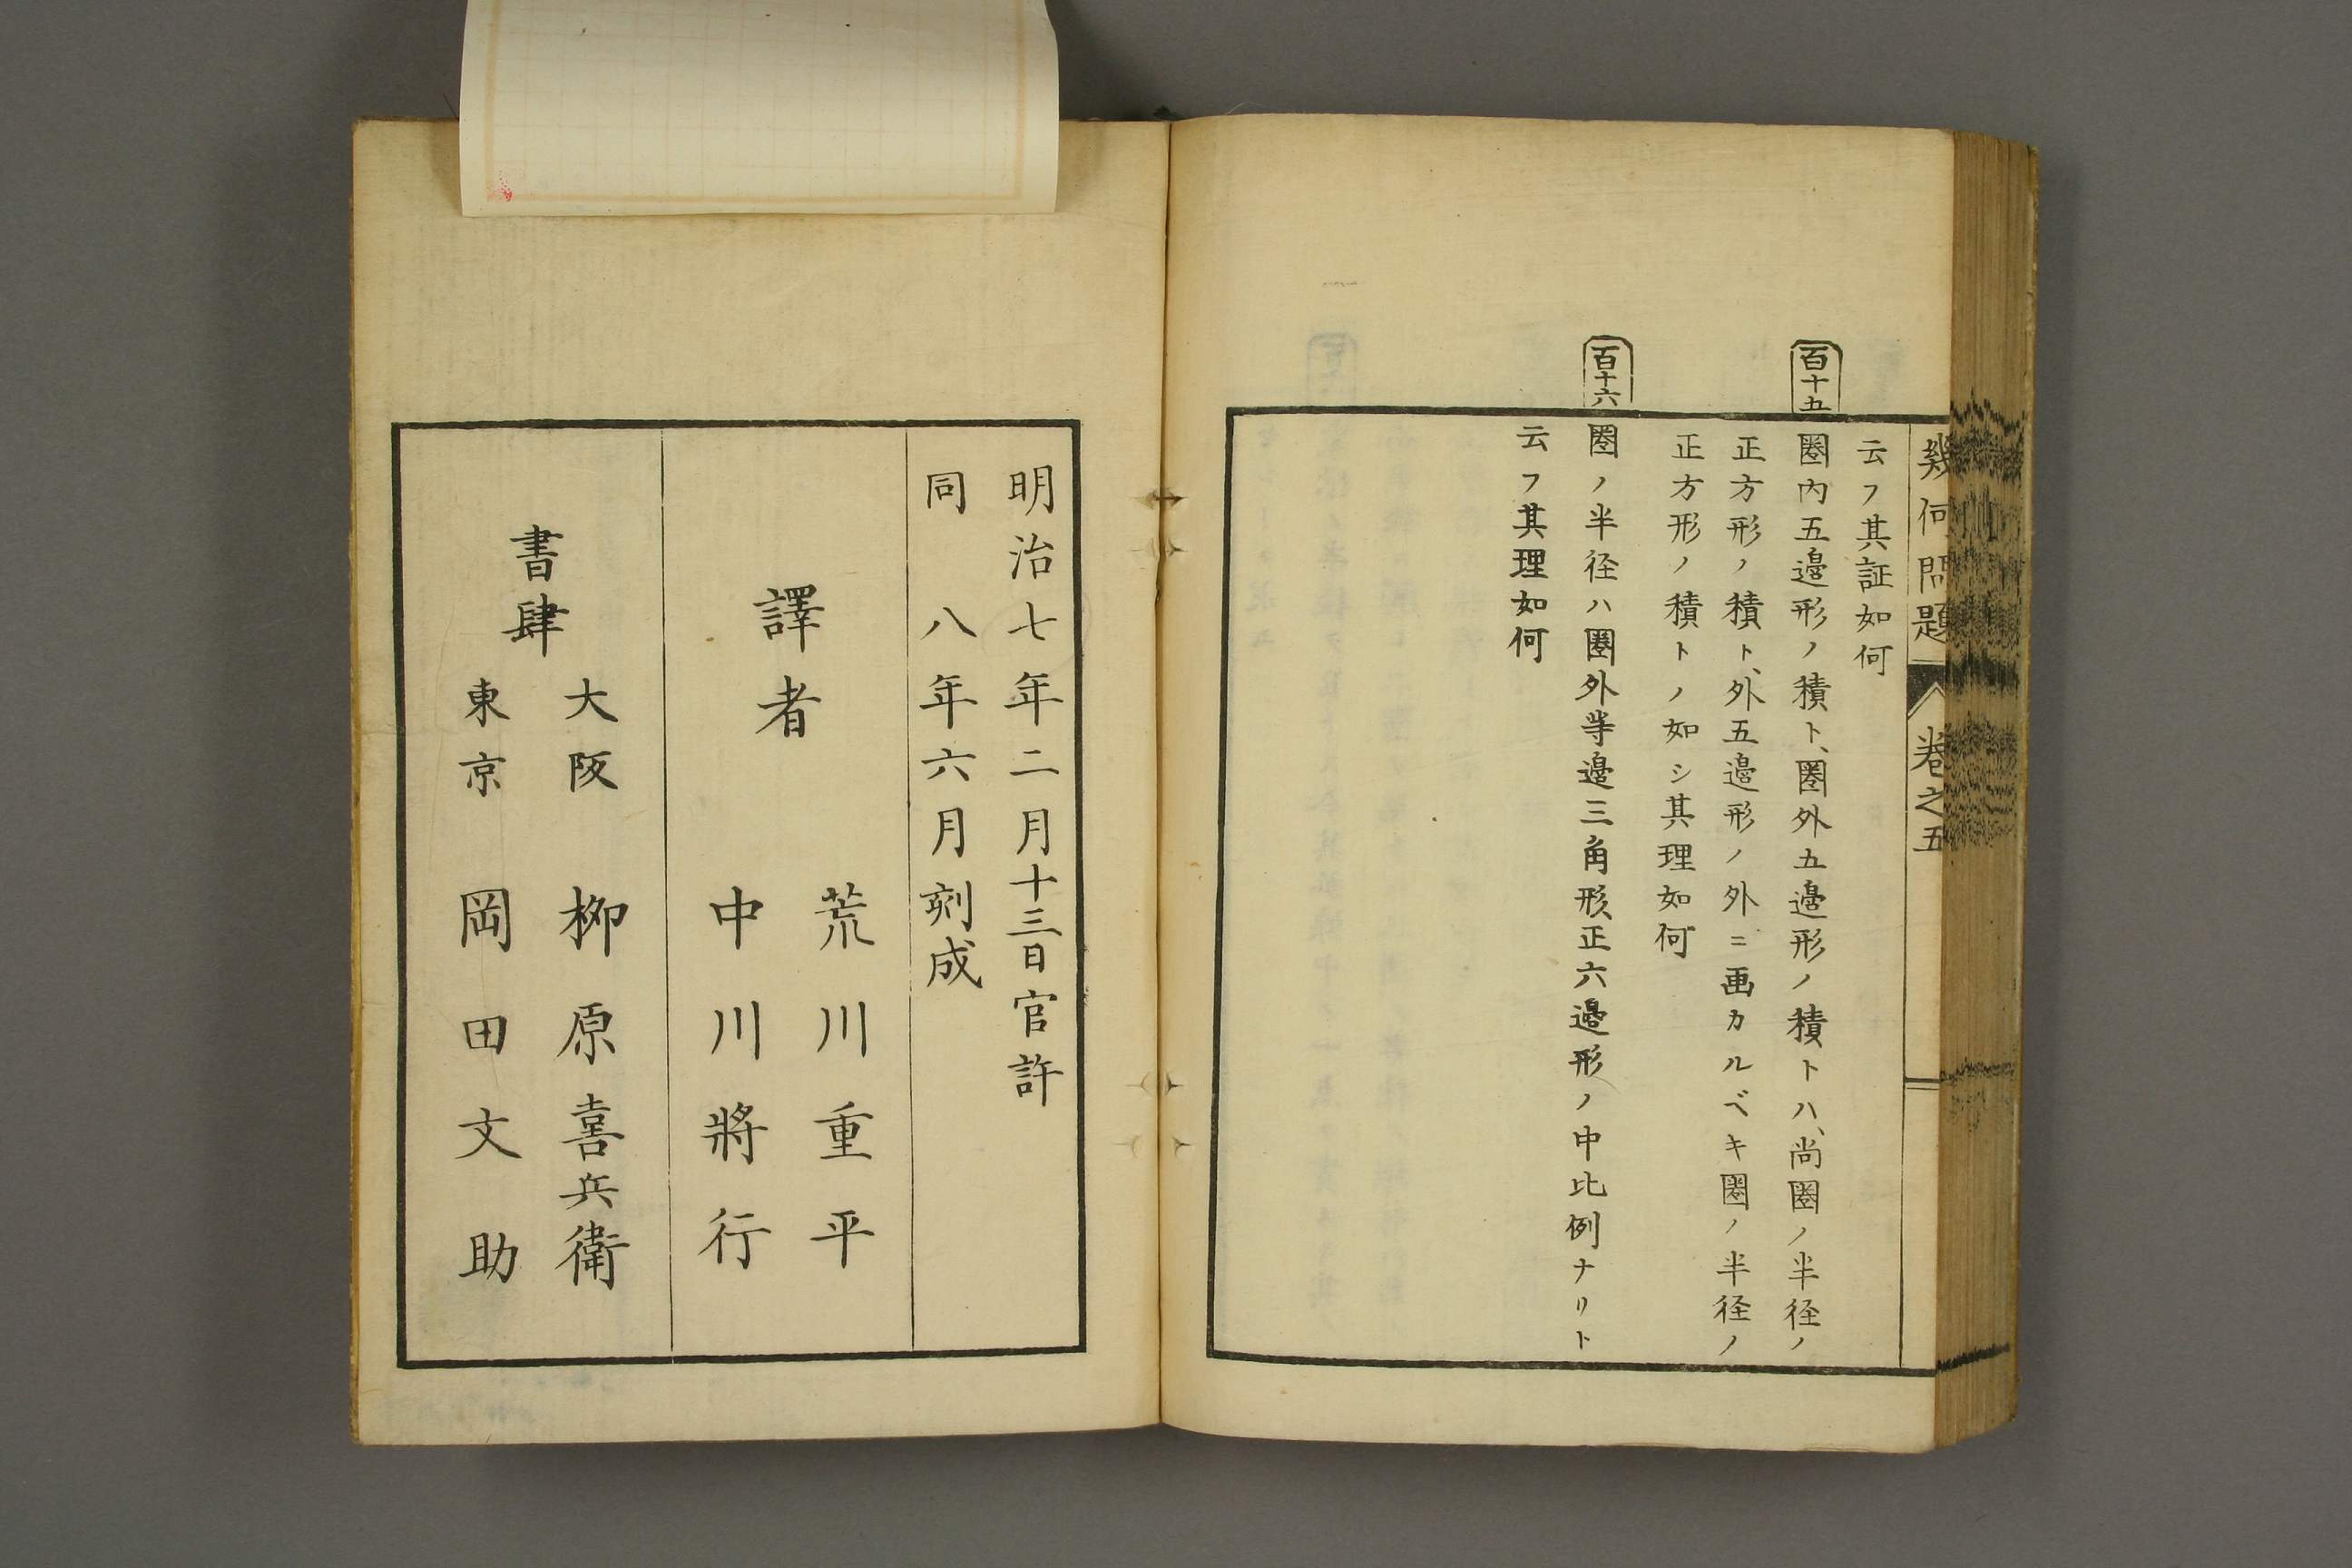 幾何問題 卷之五
云フ其証如何
百十五
圏内五邉形ノ積ト、圏外五邉形ノ積トハ、尚圏ノ半径ノ
正方形ノ積ト、外五邉形ノ外ニ画カルベキ圏ノ半径ノ
正方形ノ積トノ如シ其理如何
百十六
圏ノ半径ハ圏外等邉三角形、正六邉形ノ中比例ナリト
云フ其理如何
明治七年二月十三日官許
同 八年六月刻成
譯者
荒川重平
中川將行
書肆
大阪 栁原喜兵衛
東京 岡田文助